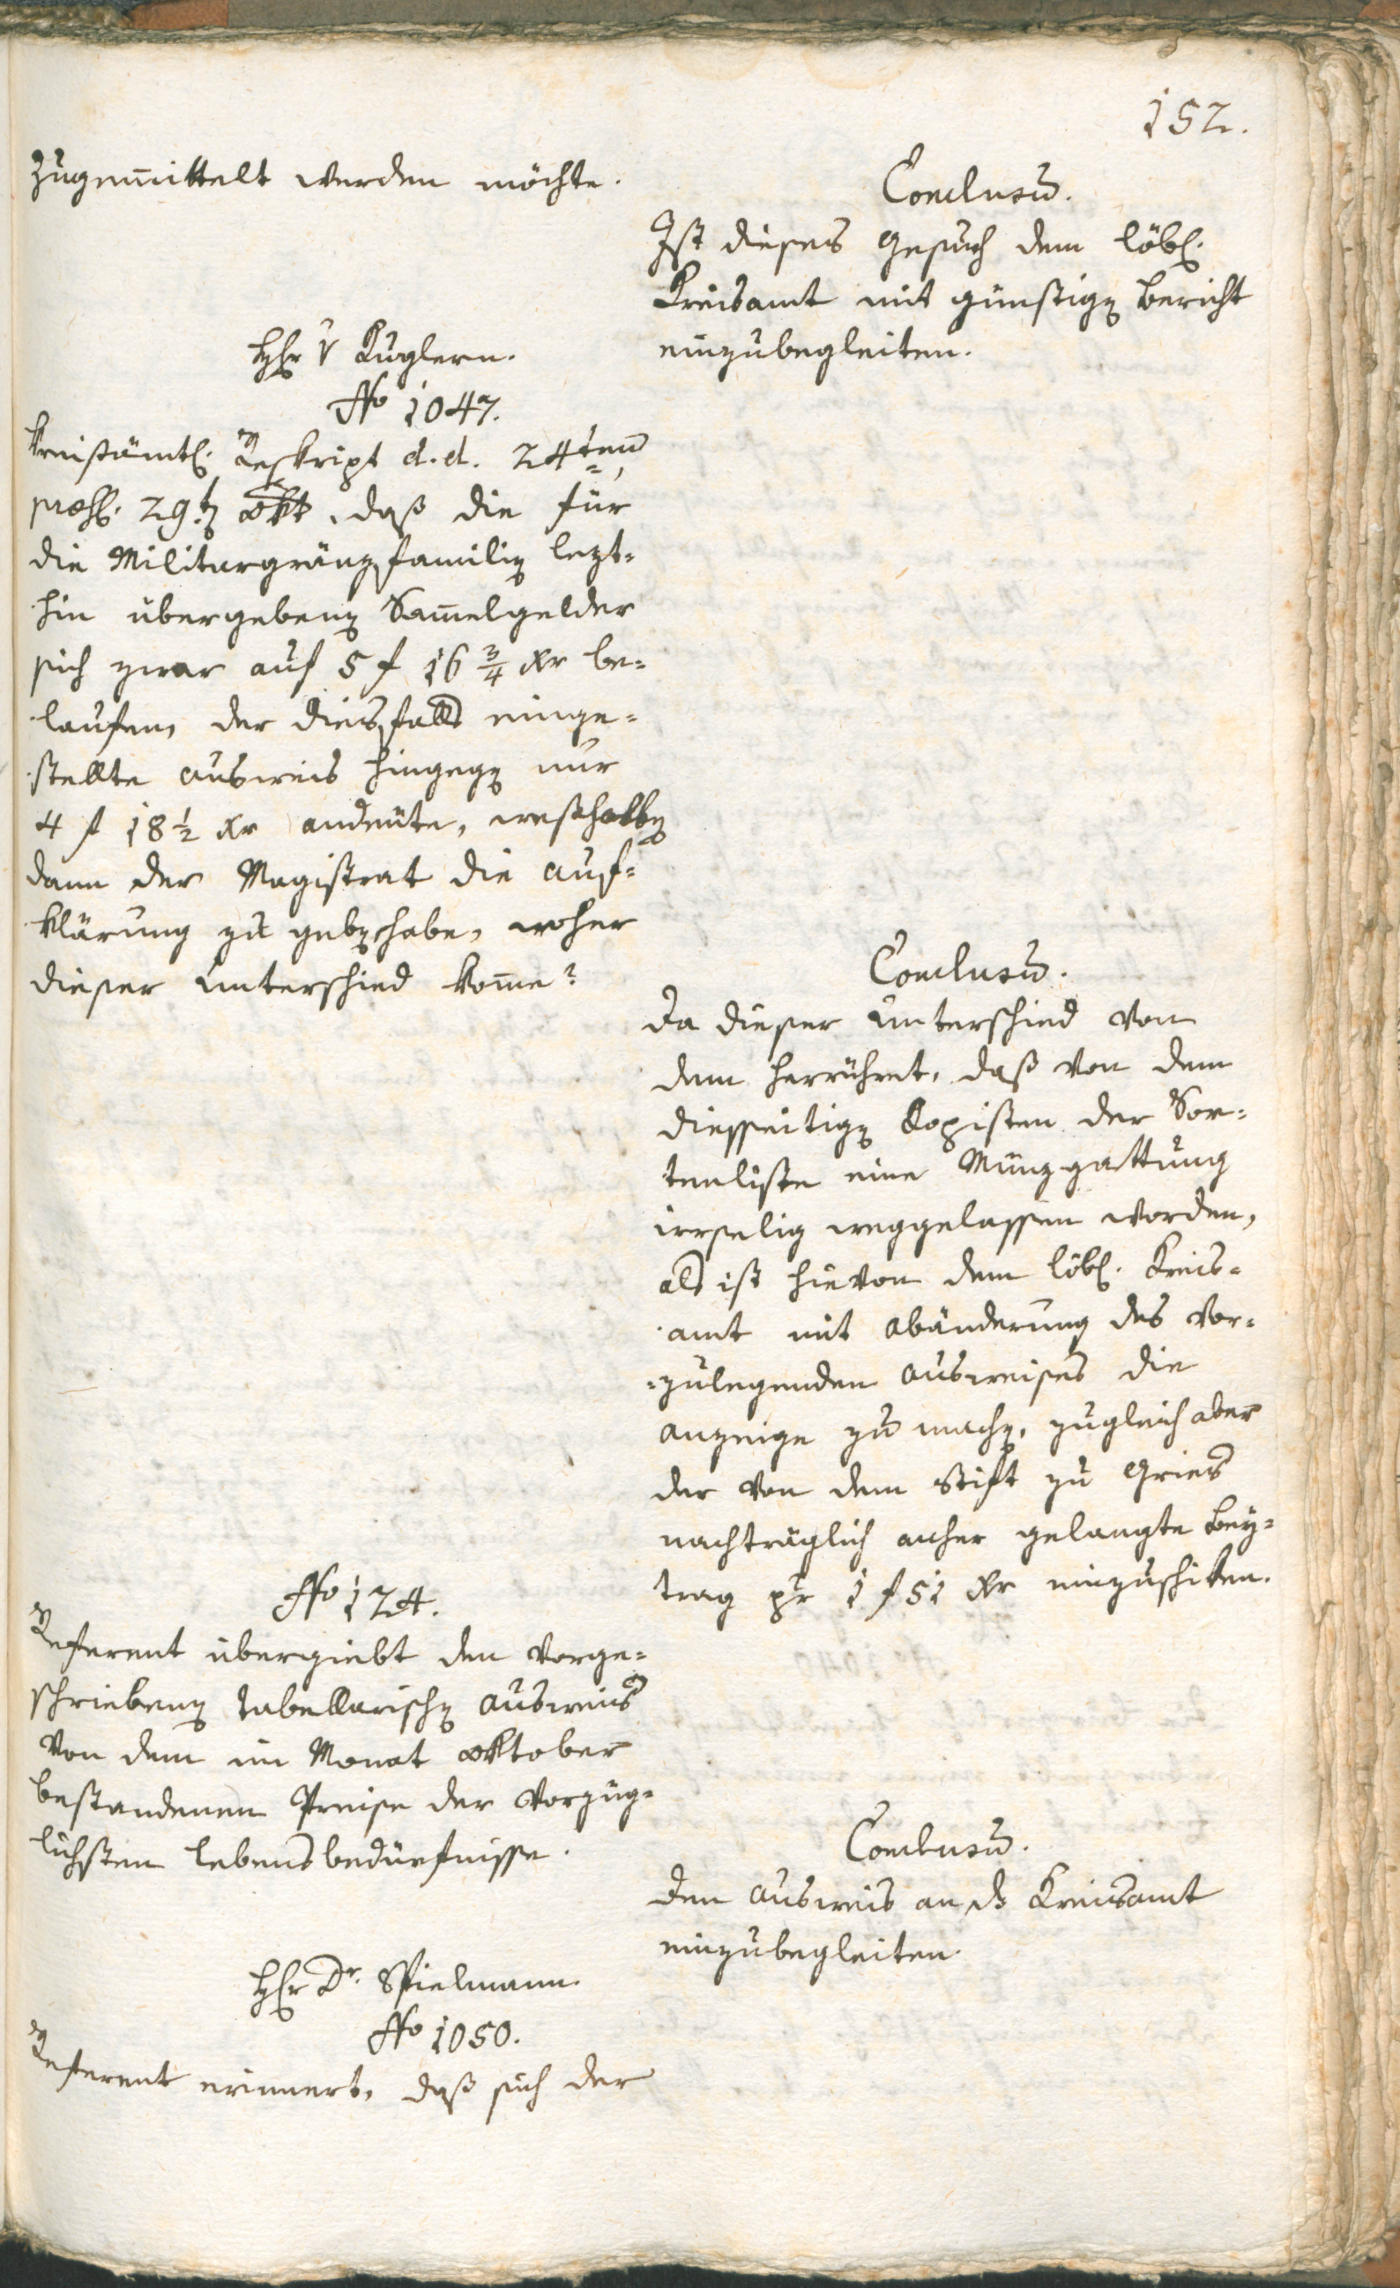 152.
zugemittelt werden möchte.
Conclusū.
Ist dieses Gesuch dem löbl.
Kreisamt mit günstigen Bericht
einzubegleiten.
Hr v Kuglern.
No 1047.
Kreisämtl. Reskript d. d. 24ten
praes. 29ten Okt., daß die für
die Militargränzfamilien lezt-
hin übergebenen Sam̄elgelder
sich zwar auf 5 f 16 3/4 xr be-
laufen, der diesfalls einge-
stellte Ausweis hingegen nur
4 f 18 1/2 xr andeute, weßhalben
dann der Magistrat die Auf-
klärung zu geben habe, woher
dieser Unterschied kom̄e?
Conclusū.
Da dieser Unterschied von
dem herrühret, daß von dem
diesseitigen Kopisten der Sor-
tenliste eine Münzgattung
irrselig weggelassen worden,
als ist hievon dem löbl. Kreis-
amt mit Abänderung des vor-
zulegenden Ausweises die
Anzeige zu machen, zugleich aber
der von dem Stift zu Gries
nachträglich anher gelangte Bey-
trag pr 1 f 51 xr einzuschiken.
No 124.
Referent übergiebt den vorge-
schriebenen tabellarischen Ausweis
von dem im Monat Oktober
bestandenen Preise der vorzüg-
lichsten Lebensbedürfnisse.
Conclusū.
Den Ausweis an das Kreisamt
einzubegleiten.
Hr Dr. Spielmann.
No 1050.
Referent erinnert, daß sich der